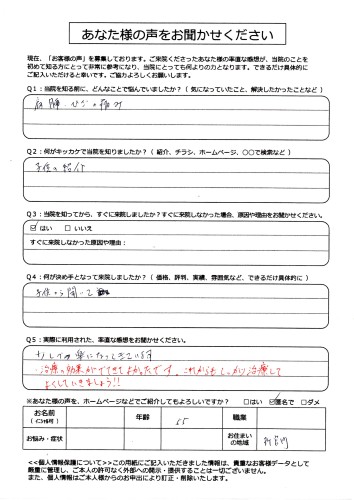 あなた様の声をお聞かせください
現在、「お客様の声」を募集しております。ご来院くださったあなた様の率直な感想が、当院のことを
初めて知る方にとって非常に参考になり、当院にとっても何よりの力となります。できるだけ具体的に
ご記入いただけると幸いです。ご協力よろしくお願いします。
Q1：当院を知る前に、どんなことで悩んでいましたか？（ 気になっていたこと、解決したかったことなど ）
腰、ひざの痛み
Q2：何がキッカケで当院を知りましたか？（ 紹介、チラシ、ホームページ、〇〇で検索など ）
子供の紹介
Q3：当院を知ってから、すぐに来院しましたか？すぐに来院しなかった場合、原因や理由をお聞かせください。
☑ はい □ いいえ
すぐに来院しなかった原因や理由：
Q4：何が決め手となって来院しましたか？（ 価格、評判、実績、雰囲気など、できるだけ具体的に ）
子供から聞いて
Q5：実際に利用された、率直な感想をお聞かせください。
少しづつ楽になってきています
・治療の効果がでてきてよかったです。これからもしっかり治療して
よくしていきましょう!!
※あなた様の声を、ホームページなどでご紹介してもよろしいですか？ □ はい ☑匿名で □ダメ
お名前 年齢 55 職業
お悩み・症状 お住まい
の地域
<<個人情報保護について>>この用紙にご記入いただきました情報は、貴重なお客様データとして
厳重に管理し、ご本人の許可なく外部への開示・提供することは一切ございません。
また、個人情報はご本人様からのお申出により訂正・削除いたします。